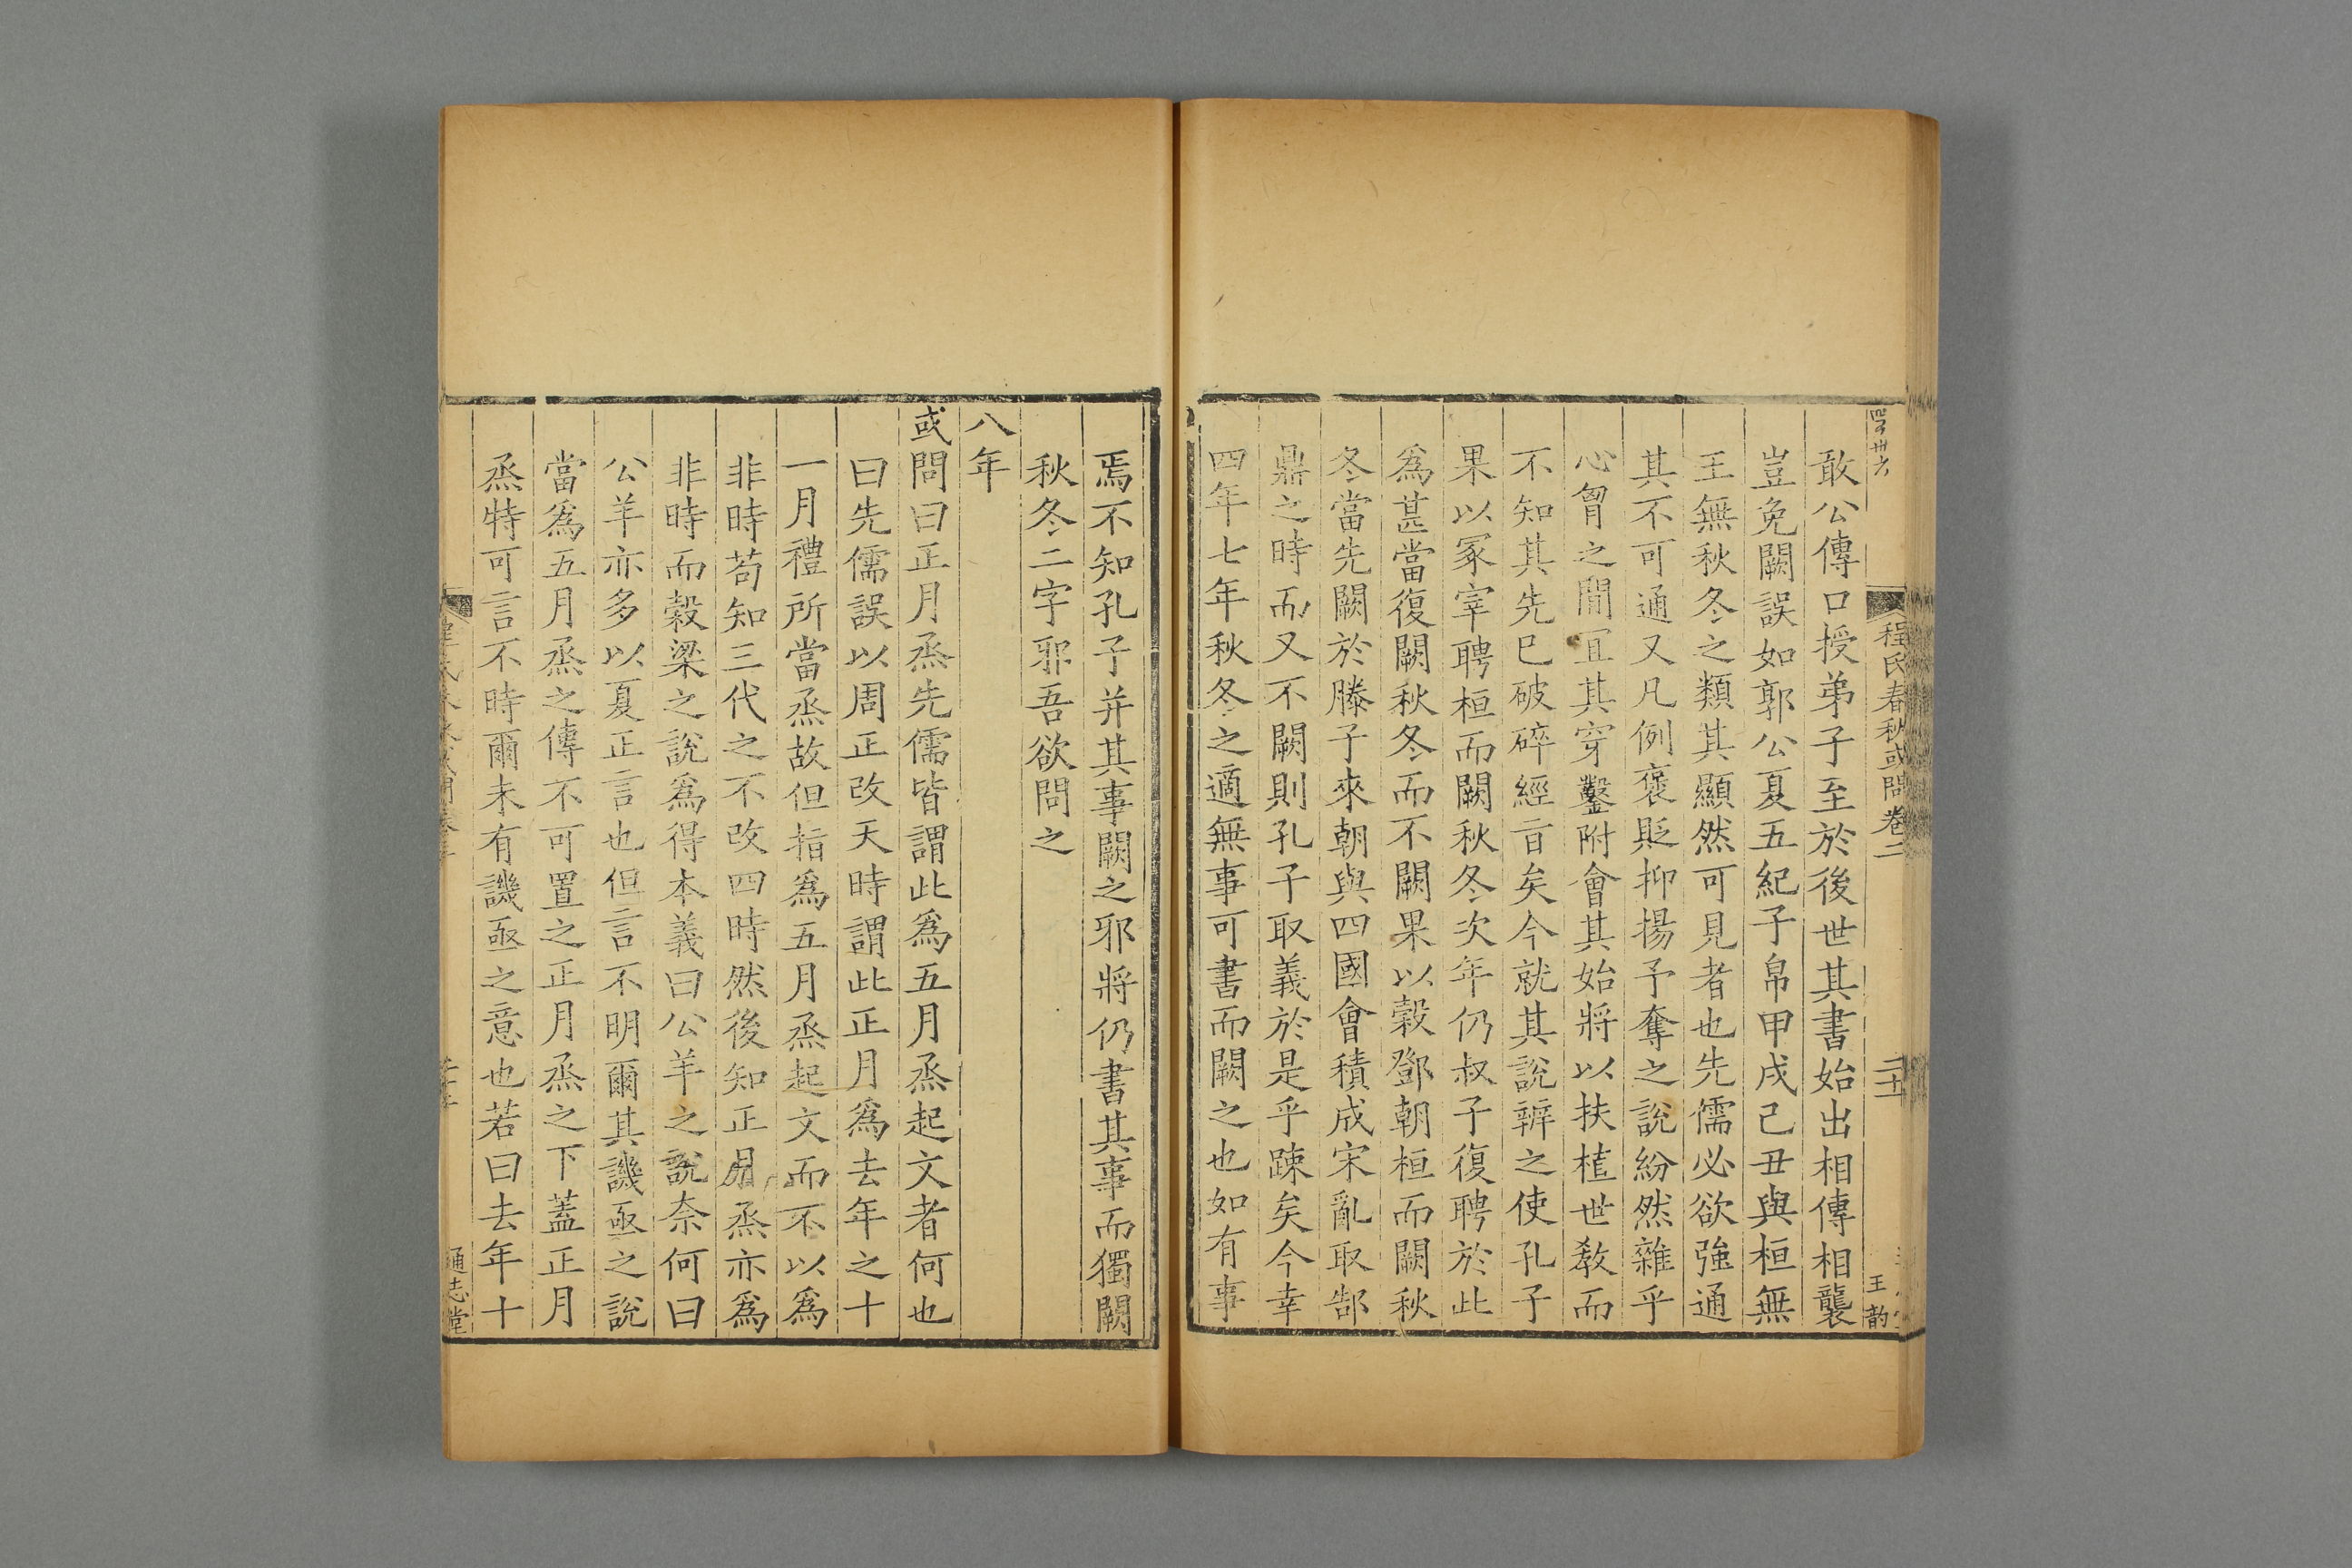 四百卅六
程氏春秋或問卷二
二十五
王韵
敢公傳口授弟子至於後世其書始出相傳相襲
豈免闕誤如郭公夏五紀子帛甲戌己丑與桓無
王無秋冬之類其顯然可見者也先儒必欲強通
其不可通又凡例褒貶抑揚予奪之說紛然雜乎
心胷之間宜其穿鑿附會其始將以扶植世教而
不知其先已破碎經旨矣今就其說辨之使孔子
果以冢宰聘桓而闕秋冬次年仍叔子復聘於此
爲甚當復闕秋冬而不闕果以穀鄧朝桓而闕秋
冬當先闕於滕子來朝與四國會稷成宋亂取郜
鼎之時而又不闕則孔子取義於是乎踈矣今幸
四年七年秋冬之適無事可書而闕之也如有事
焉不知孔子并其事闕之邪將仍書其事而獨闕
秋冬二字邪吾欲問之
八年
或問曰正月烝先儒皆謂此爲五月烝起文者何也
曰先儒誤以周正改天時謂此正月爲去年之十
一月禮所當烝故但指爲五月烝起文而不以爲
非時茍知三代之不改四時然後知正月烝亦爲
非時而穀梁之說爲得本義曰公羊之說奈何曰
公羊亦多以夏正言也但言不明爾其譏亟之說
當爲五月烝之傳不可置之正月烝之下蓋正月
烝特可言不時爾未有譏亟之意也若曰去年十
通志堂